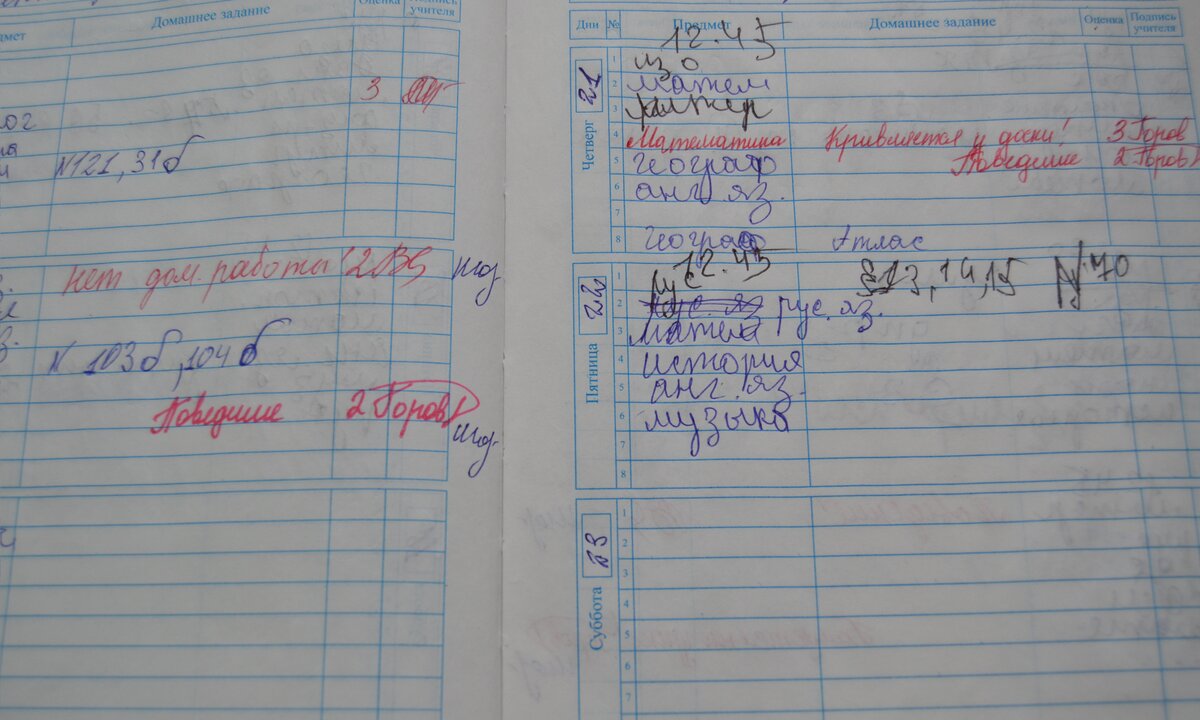 Домашнее задание
Оценка
Подпись учителя
мет
3
лог
N121, 31б
нет дом. работы! 2
N 103б, 104б
Поведение 2 Горов
Дни № Предмет Домашнее задание Оценка Подпись учителя
12.45
Четверг 21
1 изо
2 матем
3
4 Математика Кривляется у доски! 3 Горов
5 географ Поведение 2 Горов
6 анг. яз.
7
8 географ Атлас
12.45
Пятница 22
1 рус §13, 14, 15 N 70
2 рус. яз рус. яз.
3 матем
4 история
5 анг. яз.
6 музыка
7
8
Суббота 23
1
2
3
4
5
6
7